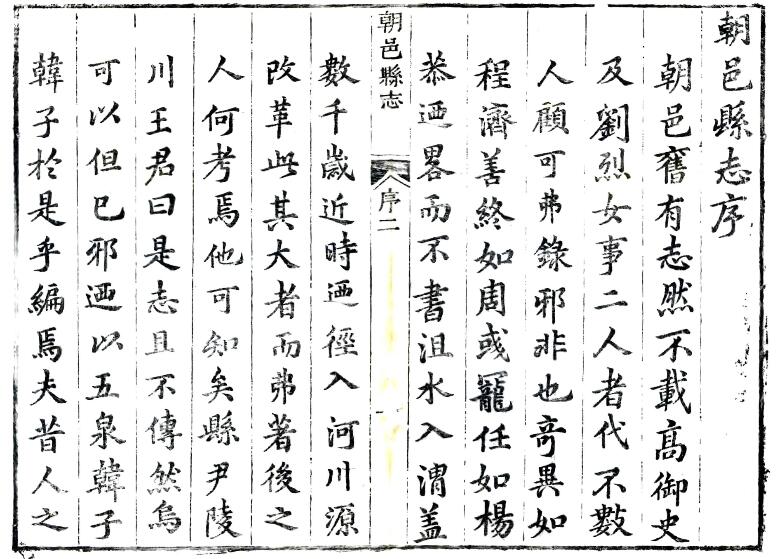 朝邑縣志序
朝邑舊有志然不載高御史
及劉烈女事二人者代不數
人顧可弗錄邪非也奇異如
程濟善終如周彧寵任如楊
恭迺畧而不書沮水入渭蓋
朝邑縣志 序二
數千歲近時迺徑入河川源
改革此其大者而弗著後之
人何考焉他可知矣縣尹陵
川王君曰是志且不傳然烏
可以但已邪迺以五泉韓子
韓子於是乎編焉夫昔人之